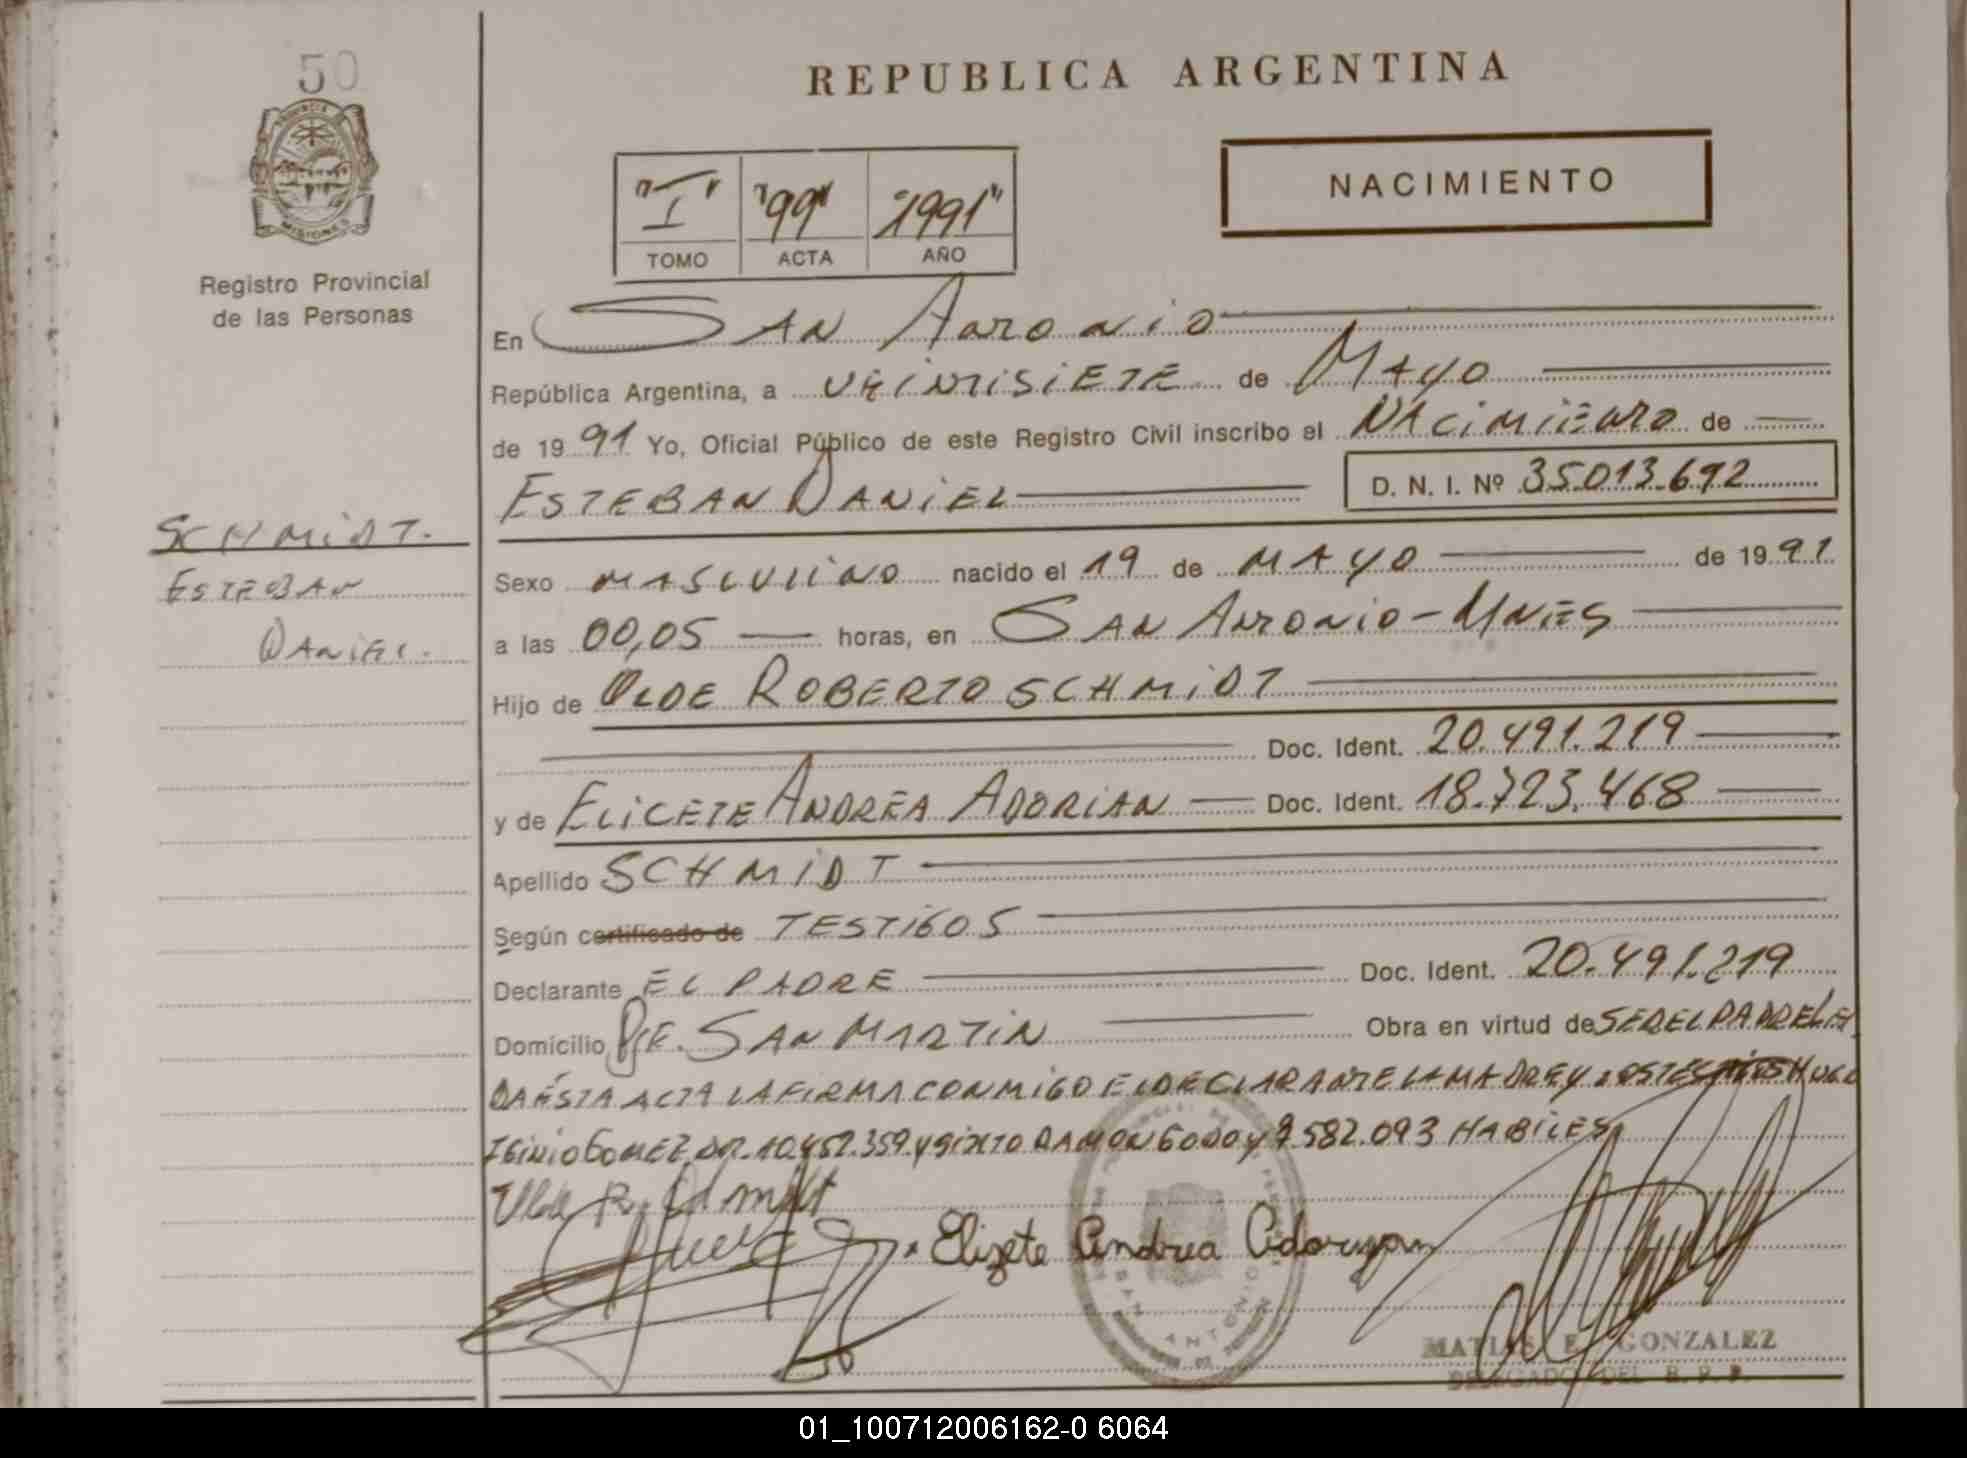 50
REPUBLICA ARGENTINA
PROVINCIA
MISIONES
Registro Provincial
de las Personas
NACIMIENTO
"I" "99" "1991"
TOMO ACTA AÑO
En SAN ANTONIO
República Argentina, a VEINTISIETE de MAYO
de 1991 Yo, Oficial Público de este Registro Civil inscribo el NACIMIENTO de
ESTEBAN DANIEL D. N. I. Nº 35.013.692
SCHMIDT.
ESTEBAN
DANIEL.
Sexo MASCULINO nacido el 19 de MAYO de 1991
a las 00,05 horas, en SAN ANTONIO - MNES
Hijo de OLDE ROBERTO SCHMIDT
Doc. Ident. 20.491.219
y de ELICETE ANDREA ADORIAN Doc. Ident. 18.723.468
Apellido SCHMIDT
Según certificado de TESTIGOS
Declarante EL PADRE Doc. Ident. 20.491.219
Domicilio PJE. SAN MARTIN Obra en virtud de SER EL PADRE LEI
DA ÉSTA ACTA LA FIRMA CONMIGO EL DECLARANTE LA MADRE Y HUGO
IGINIO GOMEZ DNI. 10.452.359 y SIXTO RAMON GODOY 7.582.093 HABILES
R. Schmidt
Elizete Andrea Adoryan
SAN ANTONIO
MATIAS E. GONZALEZ
DELEGADO DEL R. P. P.
01_100712006162-0 6064